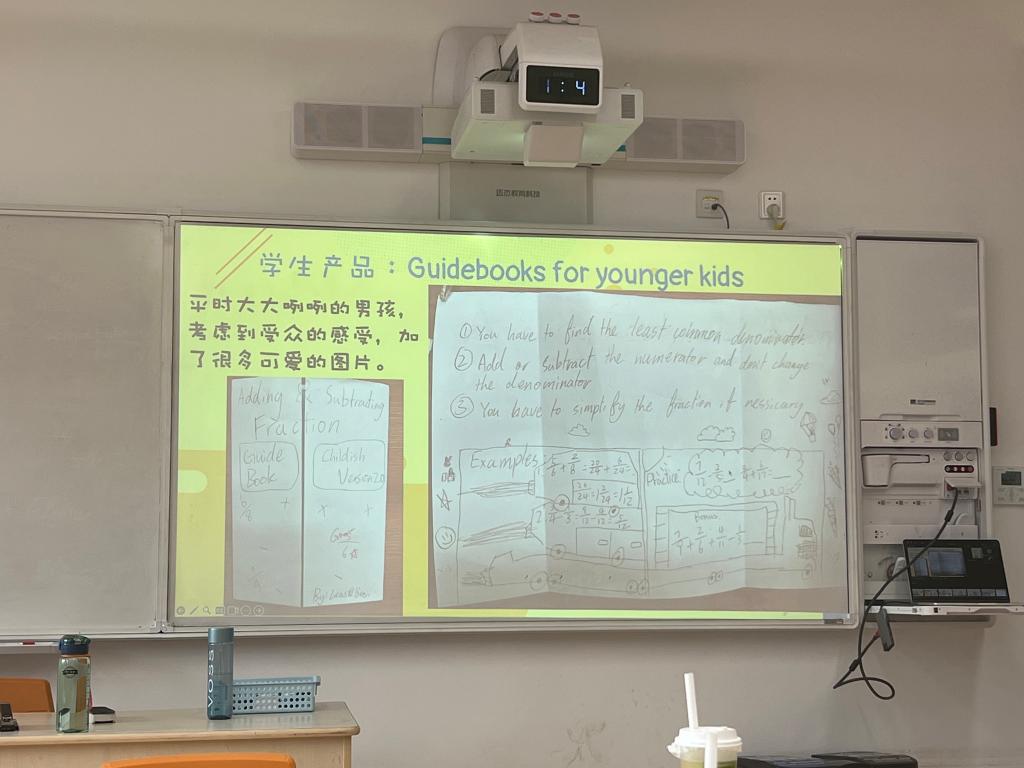 1:4
学生产品：Guidebooks for younger kids
平时大大咧咧的男孩，
考虑到受众的感受，加
了很多可爱的图片。
Adding & Subtracting
Fraction
Guide
Book
Childish
Version 2.0
① You have to find the least common denominator
② Add or subtract the numerator and don't change
the denominator
③ You have to simplify the fraction if nessicary
Examples
Practice
Bonus
VOSS